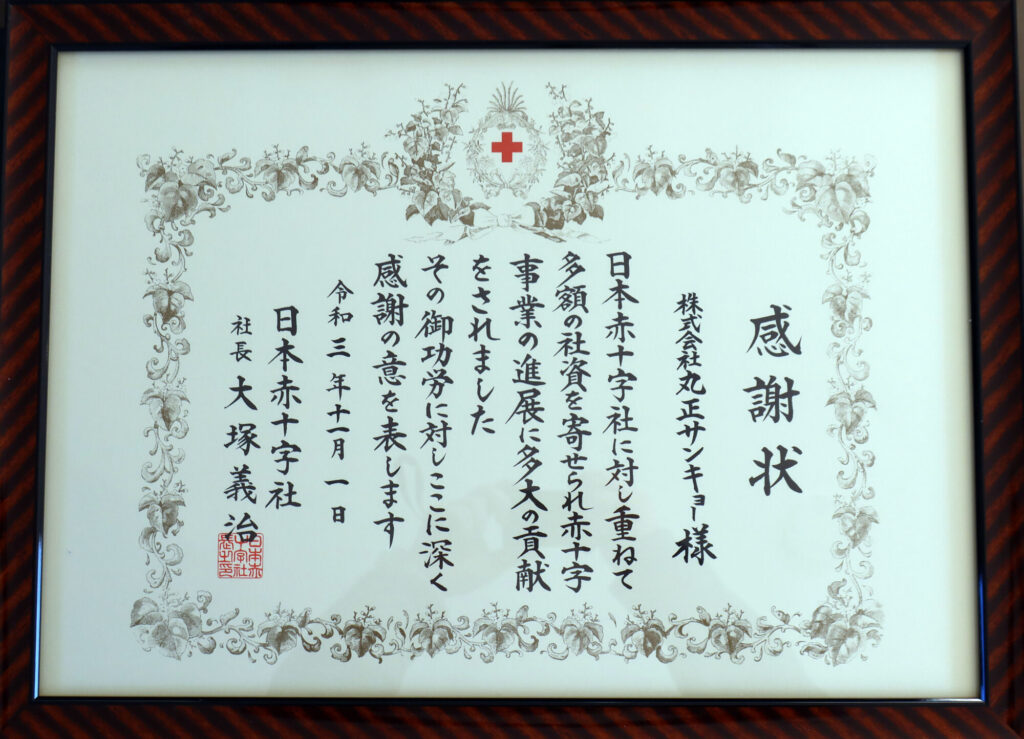 感謝状
株式会社丸正サンキョー様
日本赤十字社に対し重ねて
多額の社資を寄せられ赤十字
事業の進展に多大の貢献
をされました
その御功労に対しここに深く
感謝の意を表します
令和三年十一月一日
日本赤十字社
社長 大塚義治
日本赤
十字社
長之印